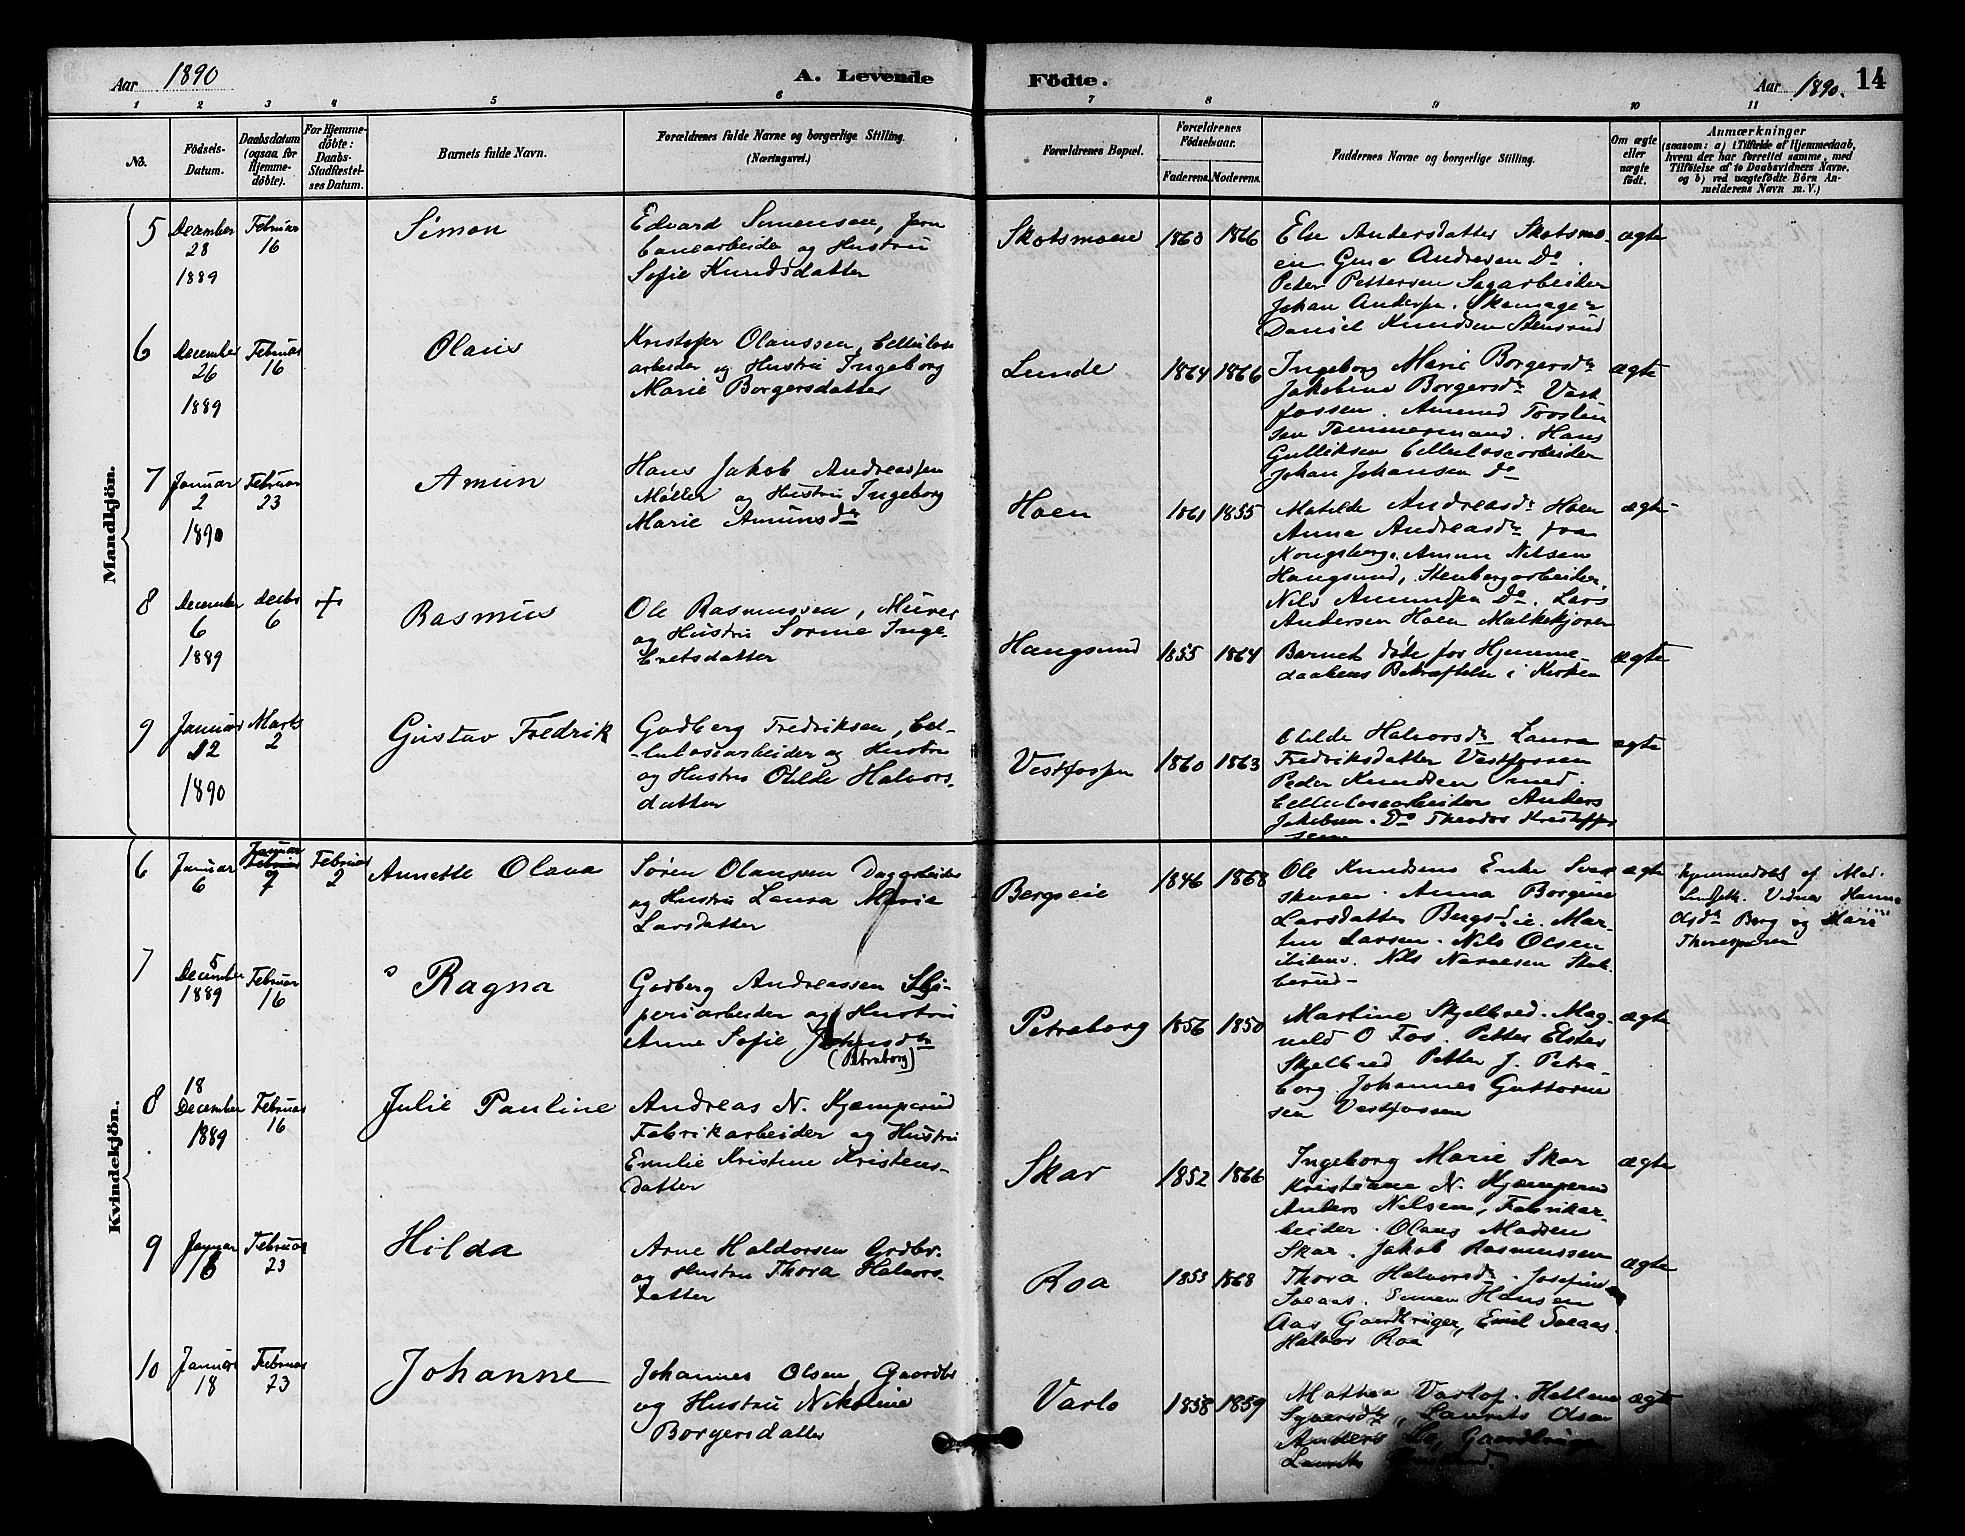 Aar 1890
A. Levende Födte.
Aar 1890. 14
1 2 3 4 5 6 7 8 9 10 11
No.
Födsels-
Datum.
Daabsdatum
(ogsaa for
Hjemme-
döbte).
For Hjemme-
döbte:
Daabs-
Stadfæstel-
ses Datum.
Barnets fulde Navn.
Forældrenes fulde Navne og borgerlige Stilling.
(Næringsvei.)
Forældrenes Bopæl.
Forældrenes
Födselsaar.
Faderens. Moderens.
Faddernes Navne og borgerlige Stilling.
Om ægte
eller
uægte
født.
Anmærkninger
(saasom: a) i Tilfælde af Hjemmedaab,
hvem der har forrettet samme, med
Tilföielse af to Daabsvidners Navne,
og b) ved uægtefödte Börn An-
melderens Navn m. V.)
Mandkjön.
5
December
28
1889
Februar
16
Simon
Edvard Simensen, Jern
banearbeider og Hustru
Sofie Knudsdatter
Skotsmoen
1860 1866
Else Andersdatter Skotsmo-
en Andresen Do.
Peder Pettersen Sagarbeider
Johan Andersen. Skomager
Daniel Knudsen Stensrud
ægte
6
December
26
1889
Februar
16
Olaus
Kristofer Olaussen, Cellulose
arbeider og Hustru Ingeborg
Marie Borgersdatter
Lunde
1864 1866
Ingeborg Marie Borgersdr
Jakobine Borgersdr Vest
fossen. Amund Torsten
sen Tømmermand. Hans
Gulliksen Cellulosearbeider
Johan Johansen Do
ægte
7
Januar
2
1890
Februar
23
Amun
Hans Jakob Andreassen
Møller og Hustru Ingeborg
Marie Amunsdr
Hoen
1861 1855
Matilde Andreasdr Hoen
Anna Andreasdr fra
Kongsberg. Amun Nilsen
Haugsund,
Nils Amundsen Do. Lars
Andersen Hoen Mælkekjører
ægte
8
December
6
1889
decbr
6
Rasmus
Ole Rasmussen, Murer
og Hustru Sorine Inge-
bretsdatter
Haugsund
1855 1864
Barnet døde før Hjemme-
daabens Bekræftelse i Kirken
ægte
9
Januar
12
1890
Marts
2
Gustav Fredrik
Gudberg Fredriksen, Cel-
lulosearbeider og Hustru
og Hustru Otilde Halvors-
datter
Vestfossen
1860 1863
Otilde Halvorsdr Laura
Fredriksdatter Vestfossen
Peder Knudsen Smed.
Cellulosearbeider Anders
Jakobsen. Do Theodor Kristoffer
sen
ægte
Kvindekjön.
6
Januar
6
Januar
Februar
7
Februar
2
Annette Olava
Søren Olaussen Dagarbeider
og Hustru Laura Marie
Larsdatter
Bergseie
1846 1868
Ole Knudsens Enke
Anna Borgine
Larsdatter Bergseie. Mar-
tin Larsen. Nils Olsen
Nils
ægte
Hjemmedøbt af Mad.
Vidner Hanna
Olsdr Berg og Mari
7
5
December
1889
Februar
16
Ragna
Gudberg Andreassen Sli-
periarbeider og Hustru
Anne Sofie Johnsdtr
(Petraborg)
Petraborg
1856 1850
Martine Skjelbred. Mag-
nild O Fos. Petter
Skjelbred Petter J. Petra-
borg. Johannes Guttorm
sen Vestfossen
ægte
8
18
December
1889
Februar
16
Julie Pauline
Andreas N. Kjæmperud
Fabrikarbeider og Hustru
Emilie Kristine Kristens-
datter
Skar
1852 1866
Ingeborg Marie Skar
Kristiane N. Kjæmperud
Anders Nilsen, Fabrikar-
beider. Olaus Madsen
Skar. Jakob Rasmussen
ægte
9
Januar
16
Februar
23
Hilda
Arne Haldorsen Grdbr.
og Hustru Thora Halvors-
datter
Roa
1853 1868
Thora Halvorsdr. Josefine
Solaas. Simen Hansen
Aas Gaardbruger, Emil Solaas.
Halvor Roa
ægte
10
Januar
18
Februar
23
Johanne
Johannes Olsen, Gaardbr
og Hustru Nikoline
Borgersdatter
Varlo
1858 1859
Mathea Varlo. Hellene
Syversdr, Laurits Olsen
Anders Gaardbruger
Laurits
ægte